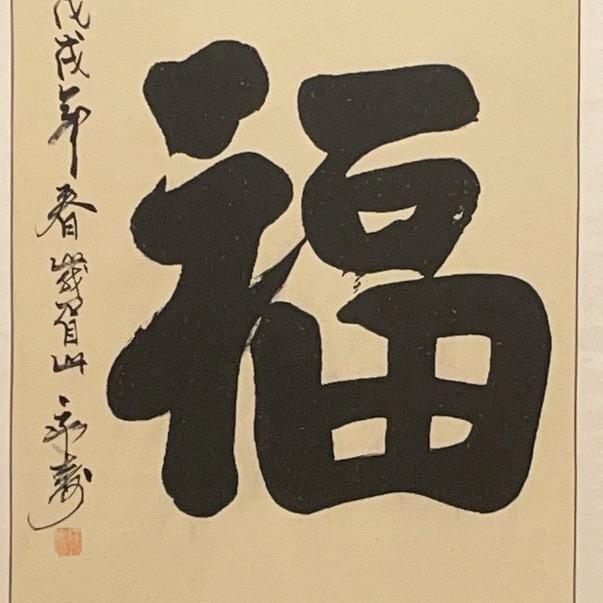 福
戊戌年春峨眉山永寿